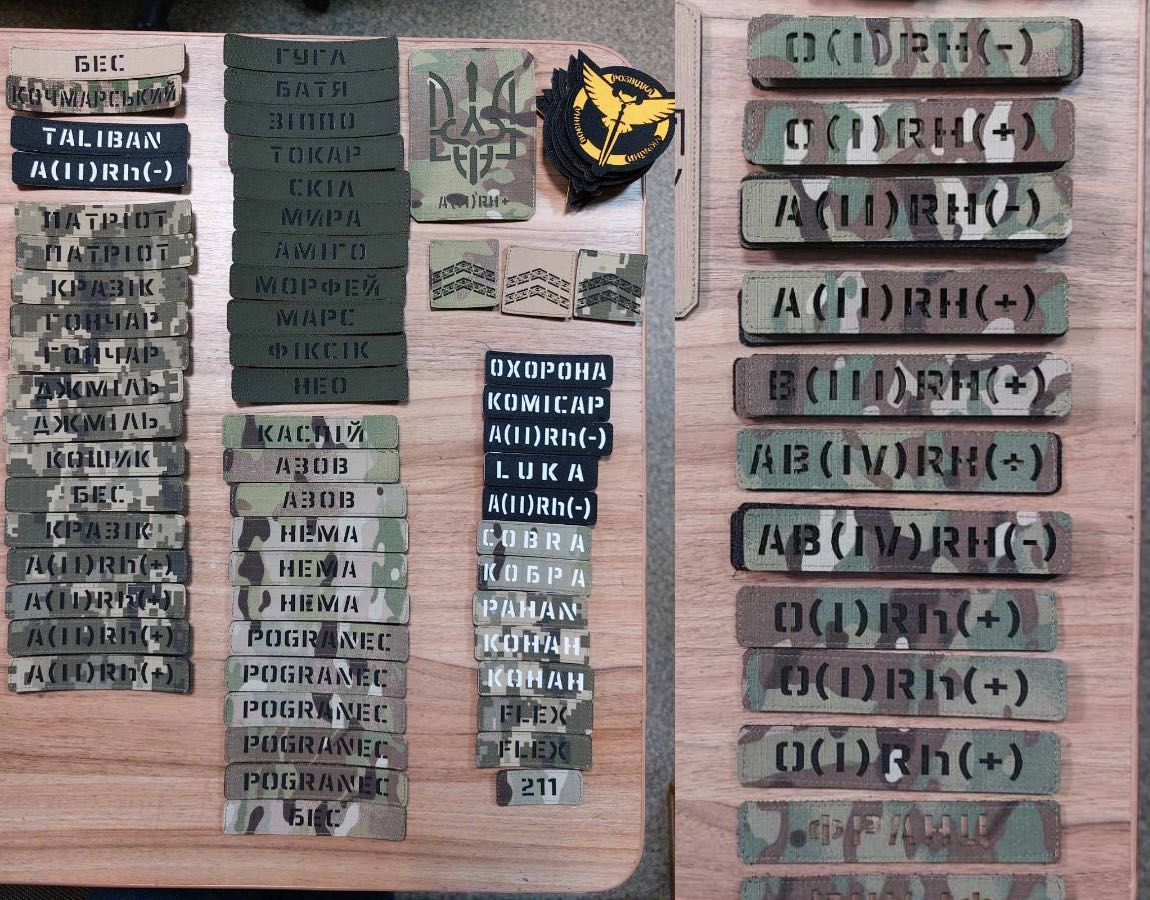 БЕС
КОЧМАРСЬКИЙ
TALIBAN
A(II)Rh(-)
ПАТРІОТ
ПАТРІОТ
КРАЗІК
ГОНЧАР
ГОНЧАР
ДЖМІЛЬ
ДЖМІЛЬ
КОШИК
БЕС
КРАЗІК
A(II)Rh(+)
A(II)Rh(+)
A(II)Rh(+)
A(II)Rh(+)
ГУГЛ
БАТЯ
ЗІППО
ТОКАР
СКІЛ
МИРА
АМІГО
МОРФЕЙ
МАРС
ФІКСІК
НЕО
КАСПІЙ
АЗОВ
АЗОВ
НЕМА
НЕМА
НЕМА
POGRANEC
POGRANEC
POGRANEC
POGRANEC
POGRANEC
БЕС
РОЗВІДКА
ВОЄННА
УКРАЇНИ
ОХОРОНА
КОМІСАР
A(II)Rh(-)
LUKA
A(II)Rh(-)
COBRA
КОБРА
PAHAN
КОНАН
КОНАН
FLEX
FLEX
211
O(I)RH(-)
O(I)RH(+)
A(II)RH(-)
A(II)RH(+)
B(III)RH(+)
AB(IV)RH(+)
AB(IV)RH(-)
O(I)Rh(+)
O(I)Rh(+)
O(I)Rh(+)
ФРАНЦ